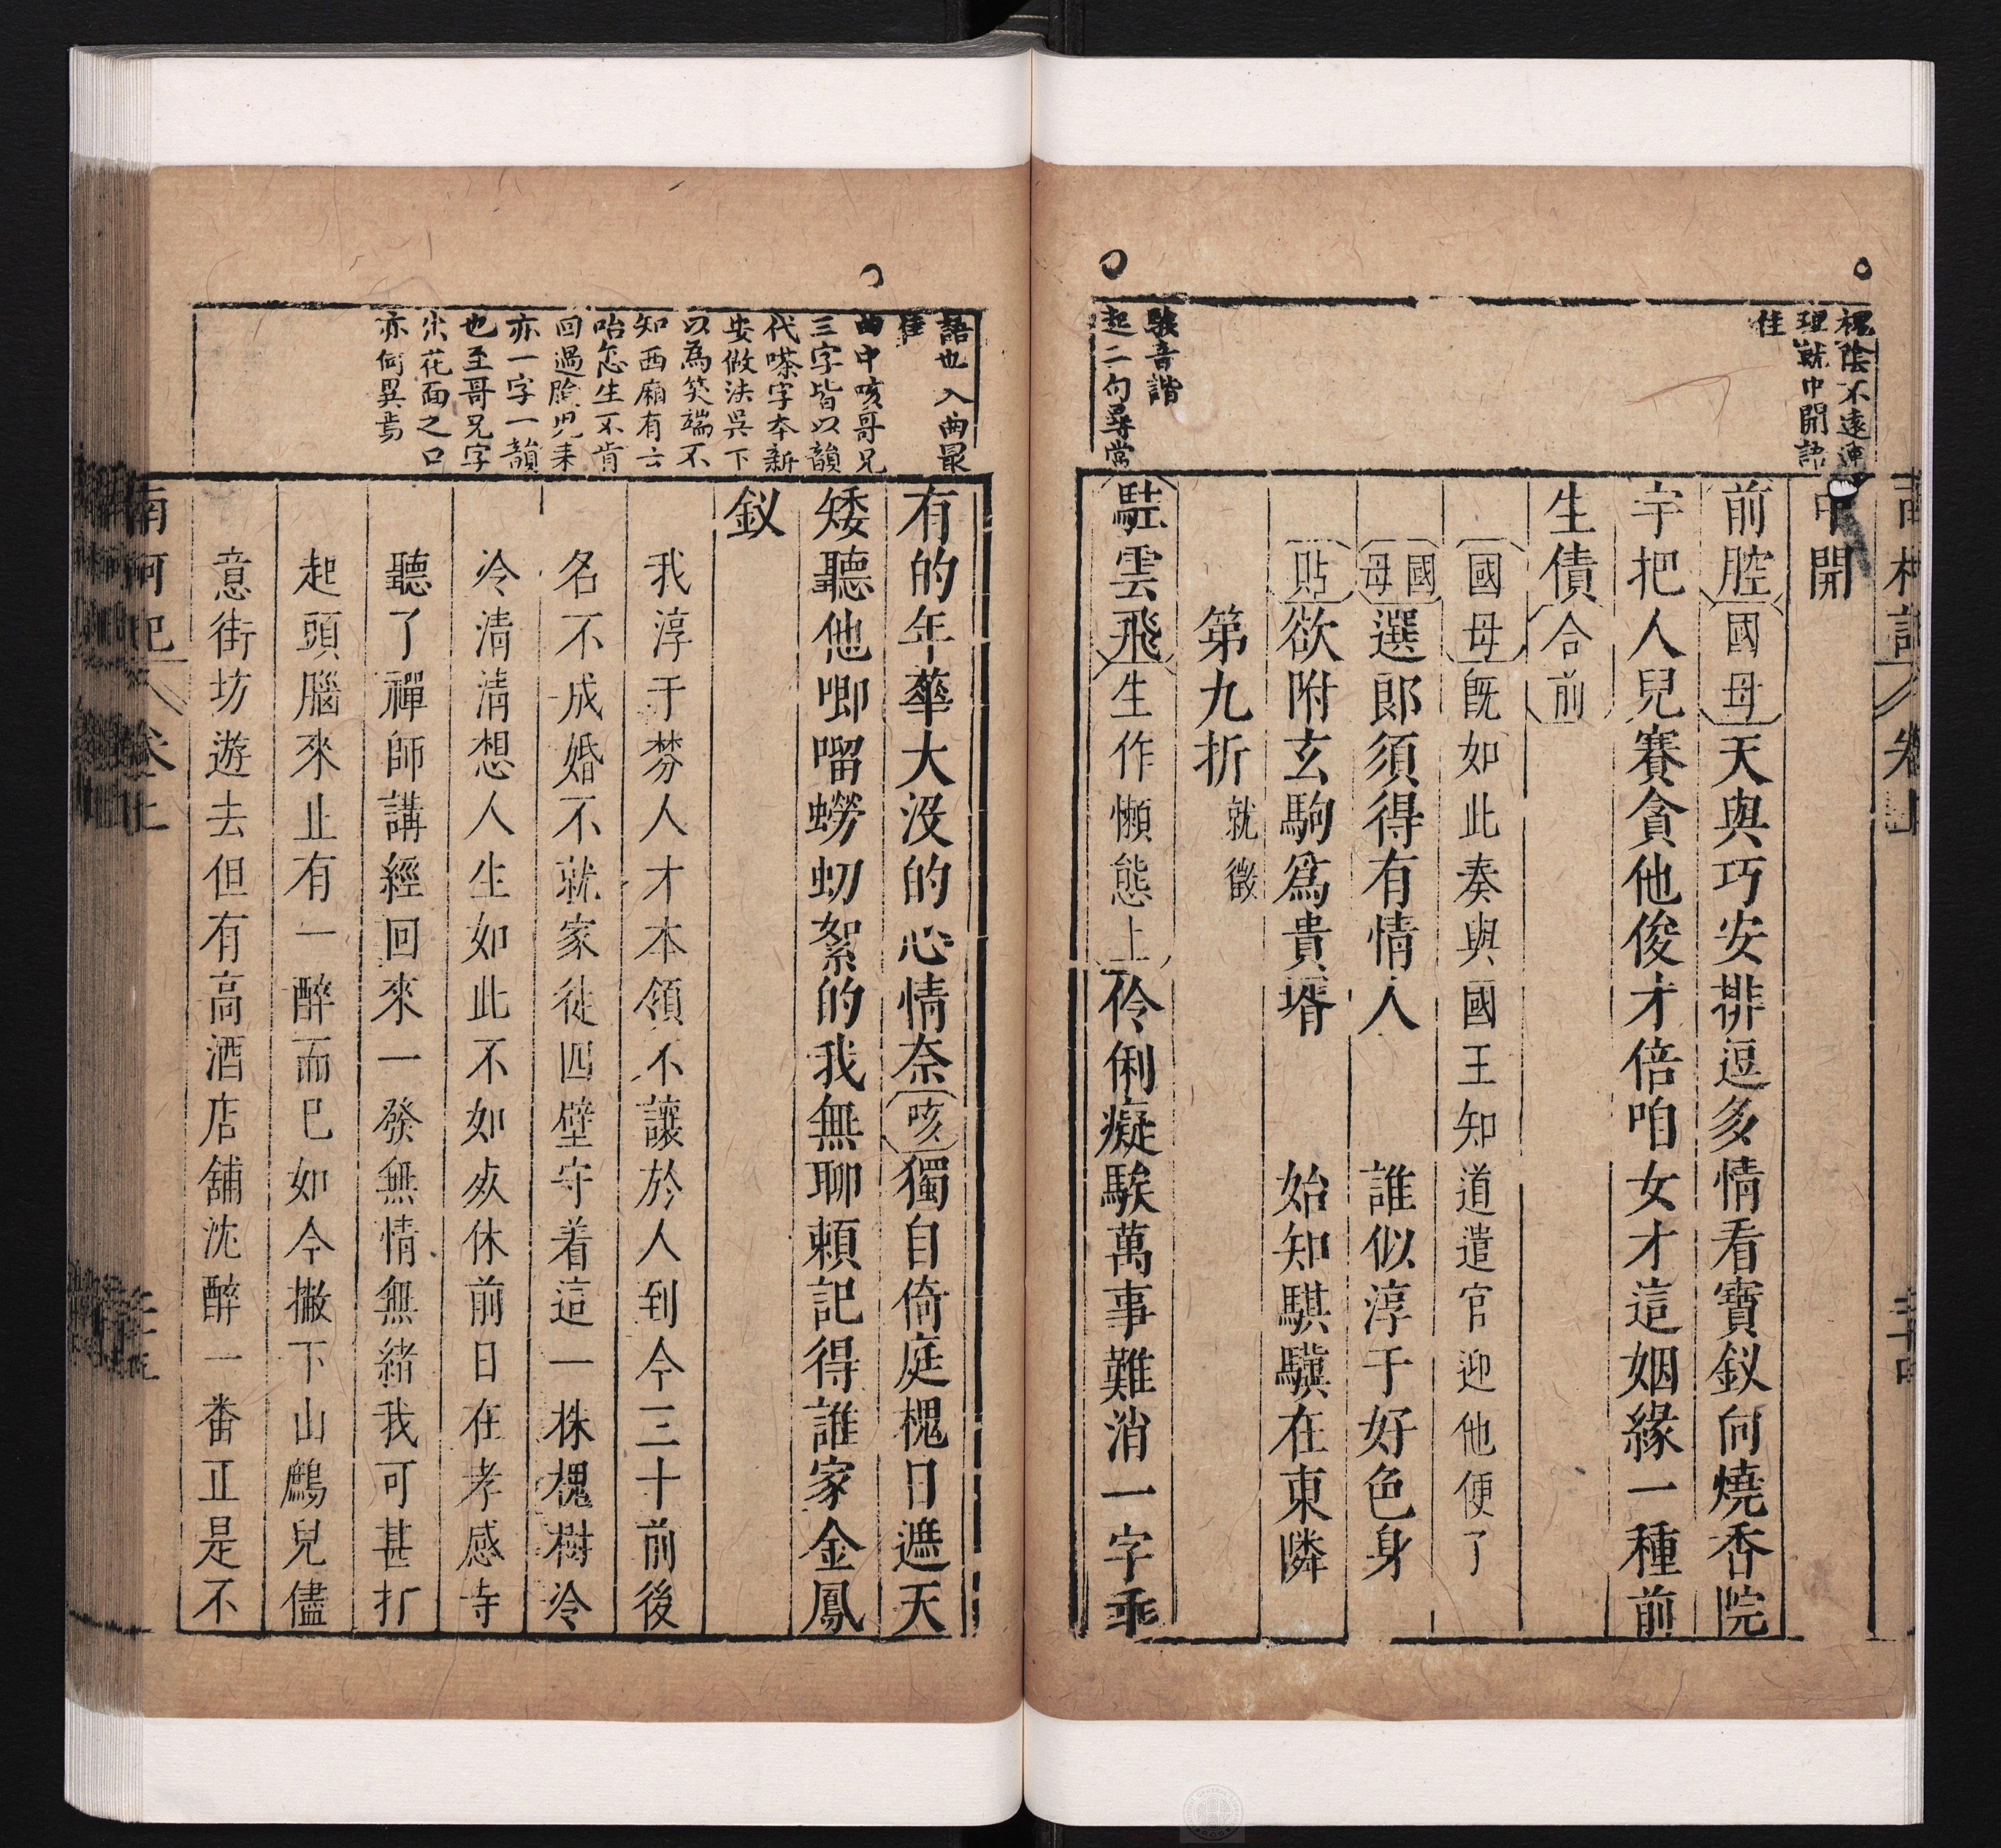 南柯記 卷上
槐陰不遠連
理就中開語
佳
駿音諧
起二句尋常
中開
前腔國母天與巧安排逗多情看寶釵向燒香院
宇把人兒賽貪他俊才倍咱女才這姻緣一種前
生債合前
國母旣如此奏與國王知道遣官迎他便了
國母選郎須得有情人 誰似淳于好色身
貼欲附玄駒爲貴壻 始知騏驥在東隣
第九折 就徵
駐雲飛生作懶態上伶俐癡騃萬事難消一字乖
語也入曲最
佳
曲中咳哥兄
三字皆以韻
代嗏字本新
安做法吳下
以為笑端不
知西廂有云
咍怎生不肯
回過臉兒来
亦一字一韻
也至哥兄字
出花面之口
亦何異焉
有的年華大沒的心情奈咳獨自倚庭槐日遮天
矮聽他唧𠺕蟧虭絮的我無聊頼記得誰家金鳳
釵
我淳于棼人才本領不讓於人到今三十前後
名不成婚不就家徒四壁守着這一株槐樹冷
冷清清想人生如此不如死休前日在孝感寺
聽了禪師講經回來一發無情無緒我可甚打
起頭腦來止有一醉而已如今撇下山鷓兒儘
意街坊遊去但有高酒店舖沈醉一番正是不
南柯記 卷上